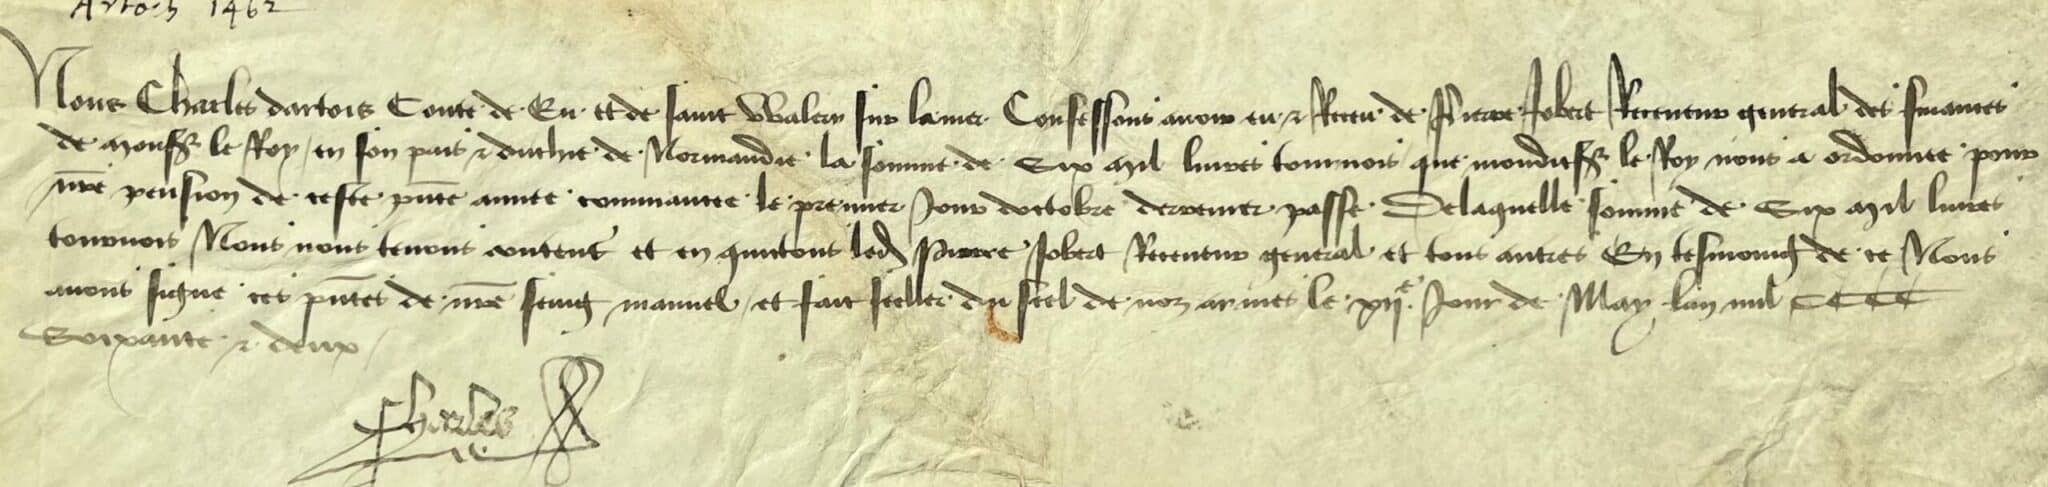 Artois 1462
Nous Charles dartois Conte de Eu et de saint Walery sur lamer Confessons avoir eu & Receu de Pierre Jobert Receveur general des finances
de monsr le Roy / en son pais & duchie de Normandie la somme de Six mil livres tournois que mondit sr le Roy nous a ordonnee pour
nre pension de ceste pnte annee commancee le premier Jour doctobre derrenier passe Delaquelle somme de Six mil livres
tournois Nous nous tenons content et en quictons led Pierre Jobert Receveur general et tous autres En tesmoing de ce Nous
avons signe ces pntes de nre seing manuel et fait seeller du seel de noz armes le xije Jour de May lan mil CCCC
Soixante & deux /
Charles